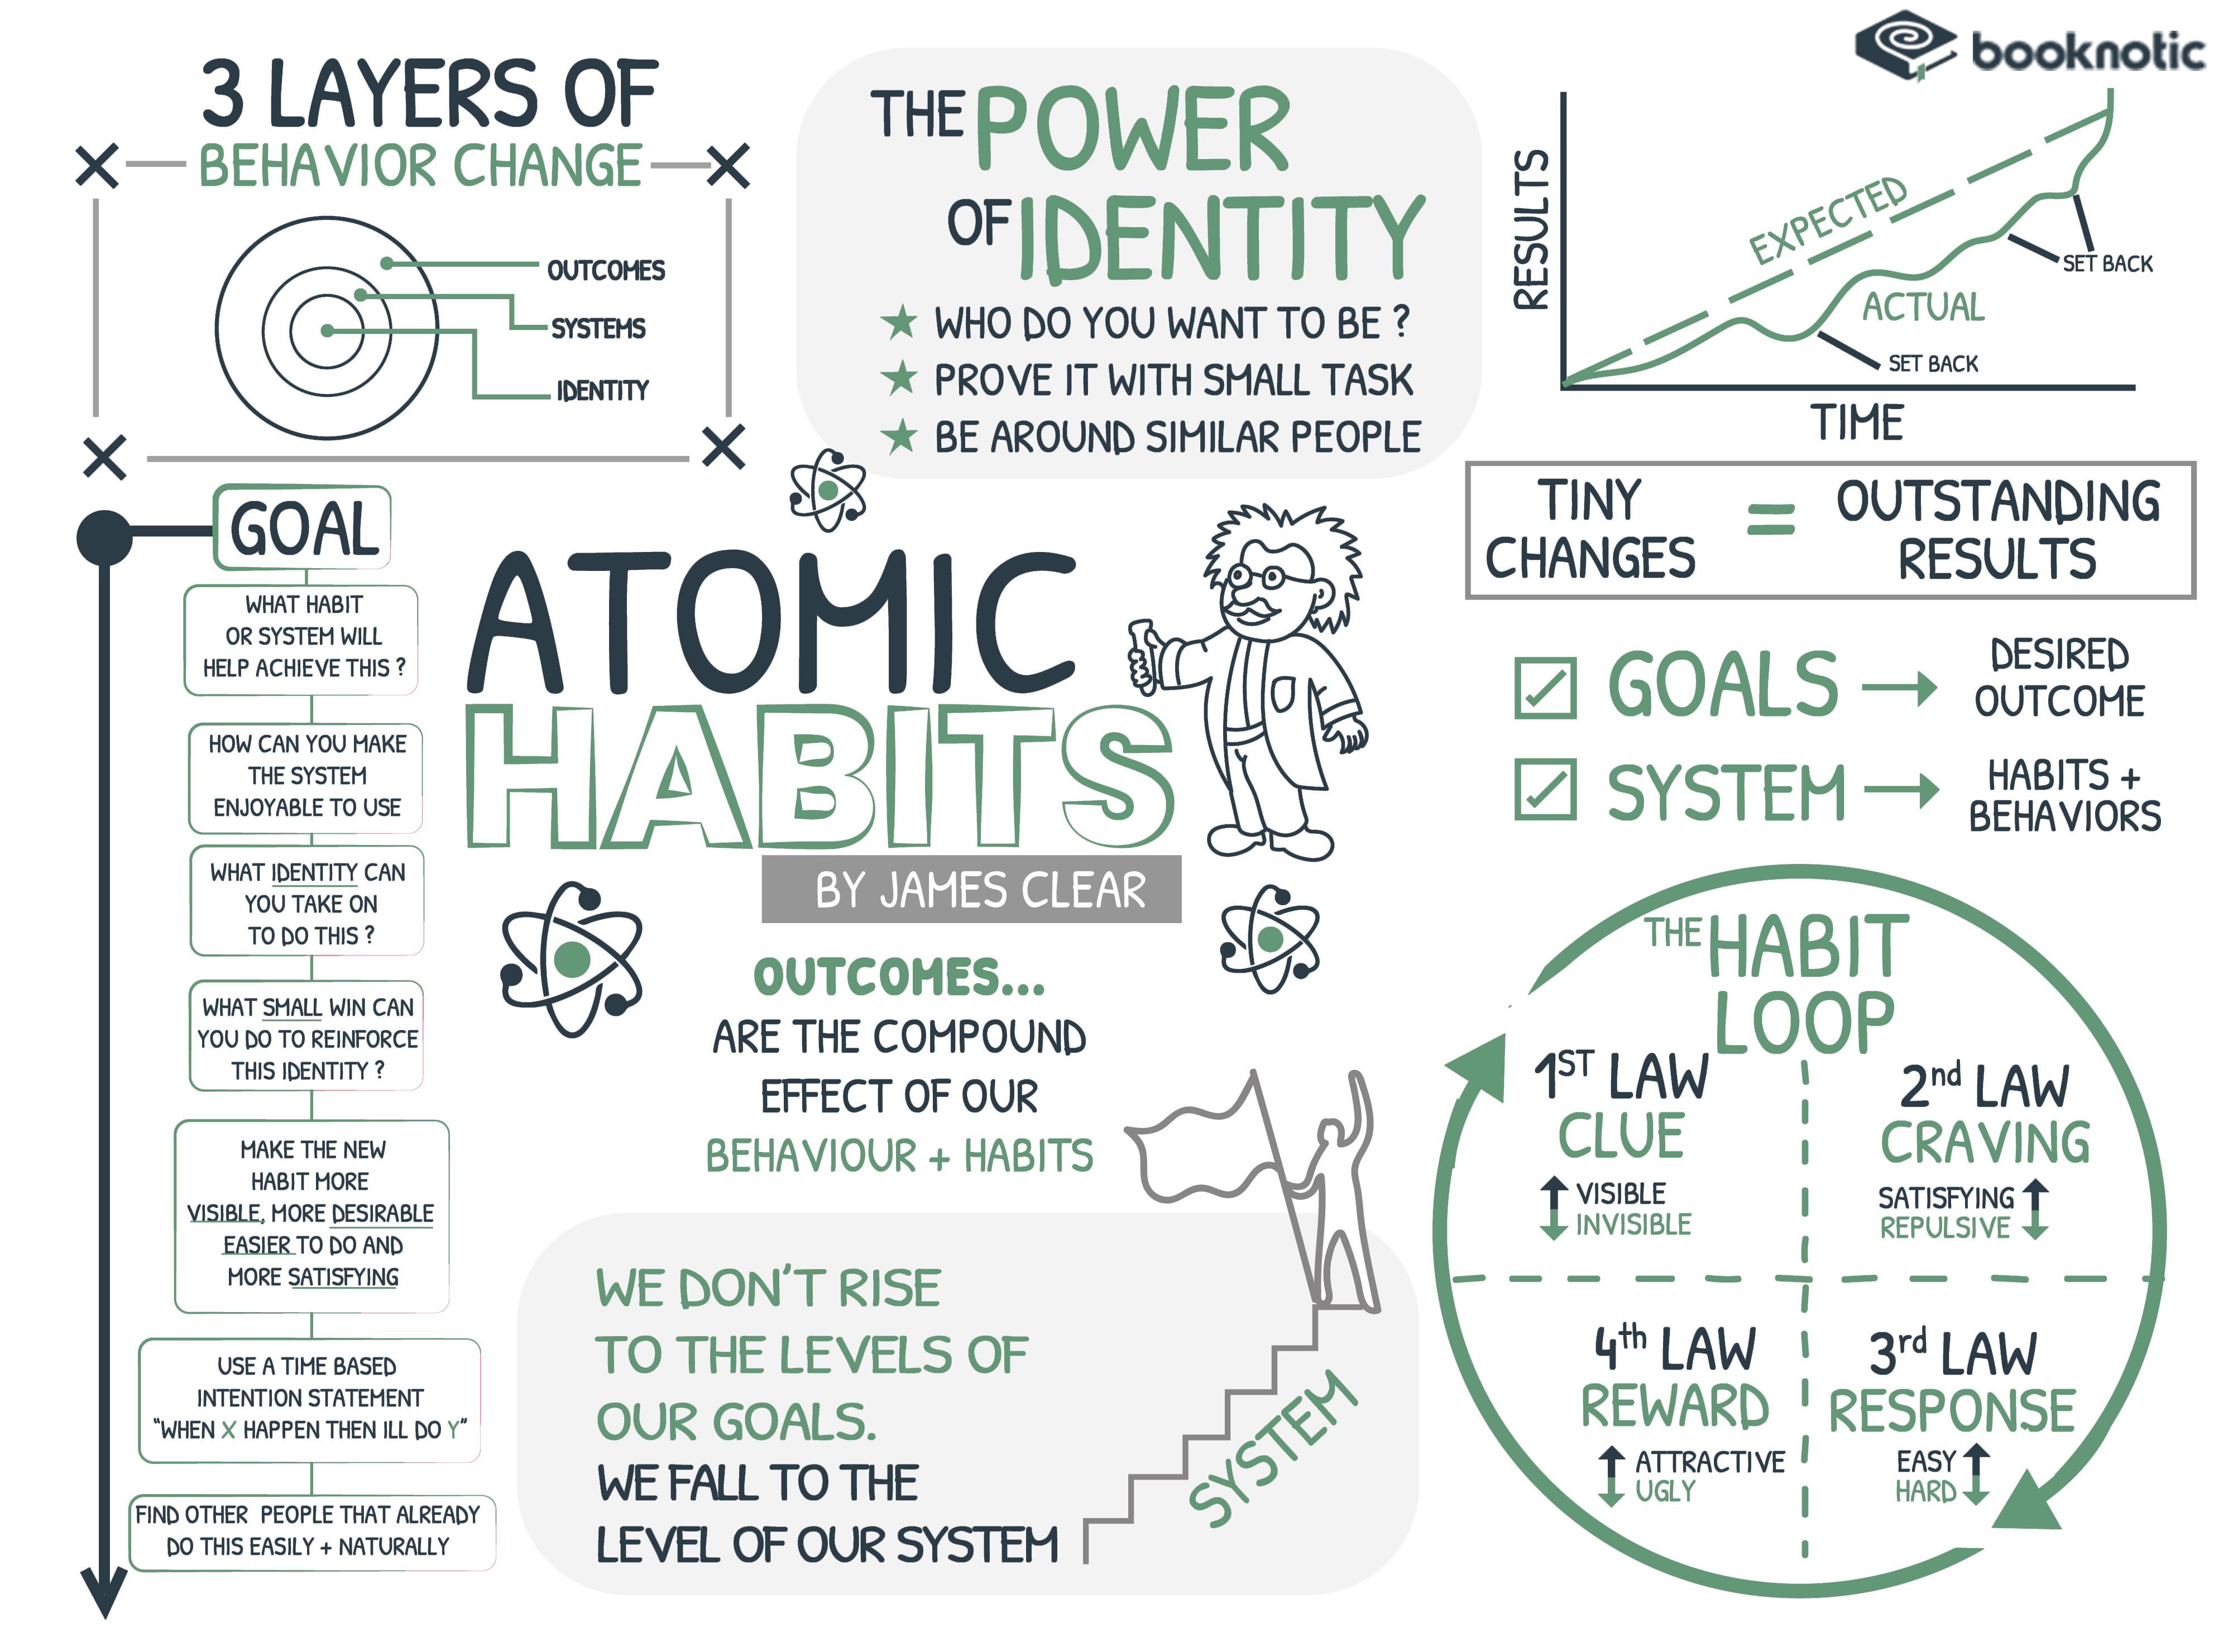 booknotic
3 LAYERS OF
BEHAVIOR CHANGE
OUTCOMES
SYSTEMS
IDENTITY
THE POWER
OF IDENTITY
WHO DO YOU WANT TO BE ?
PROVE IT WITH SMALL TASK
BE AROUND SIMILAR PEOPLE
RESULTS
EXPECTED
ACTUAL
SET BACK
SET BACK
TIME
TINY
CHANGES
=
OUTSTANDING
RESULTS
GOALS
DESIRED
OUTCOME
SYSTEM
HABITS +
BEHAVIORS
GOAL
WHAT HABIT
OR SYSTEM WILL
HELP ACHIEVE THIS ?
HOW CAN YOU MAKE
THE SYSTEM
ENJOYABLE TO USE
WHAT IDENTITY CAN
YOU TAKE ON
TO DO THIS ?
WHAT SMALL WIN CAN
YOU DO TO REINFORCE
THIS IDENTITY ?
MAKE THE NEW
HABIT MORE
VISIBLE, MORE DESIRABLE
EASIER TO DO AND
MORE SATISFYING
USE A TIME BASED
INTENTION STATEMENT
"WHEN X HAPPEN THEN ILL DO Y"
FIND OTHER PEOPLE THAT ALREADY
DO THIS EASILY + NATURALLY
ATOMIC
HABITS
BY JAMES CLEAR
OUTCOMES...
ARE THE COMPOUND
EFFECT OF OUR
BEHAVIOUR + HABITS
WE DON'T RISE
TO THE LEVELS OF
OUR GOALS.
WE FALL TO THE
LEVEL OF OUR SYSTEM
SYSTEM
THE HABIT
LOOP
1ST LAW
CLUE
VISIBLE
INVISIBLE
2nd LAW
CRAVING
SATISFYING
REPULSIVE
4th LAW
REWARD
ATTRACTIVE
UGLY
3rd LAW
RESPONSE
EASY
HARD